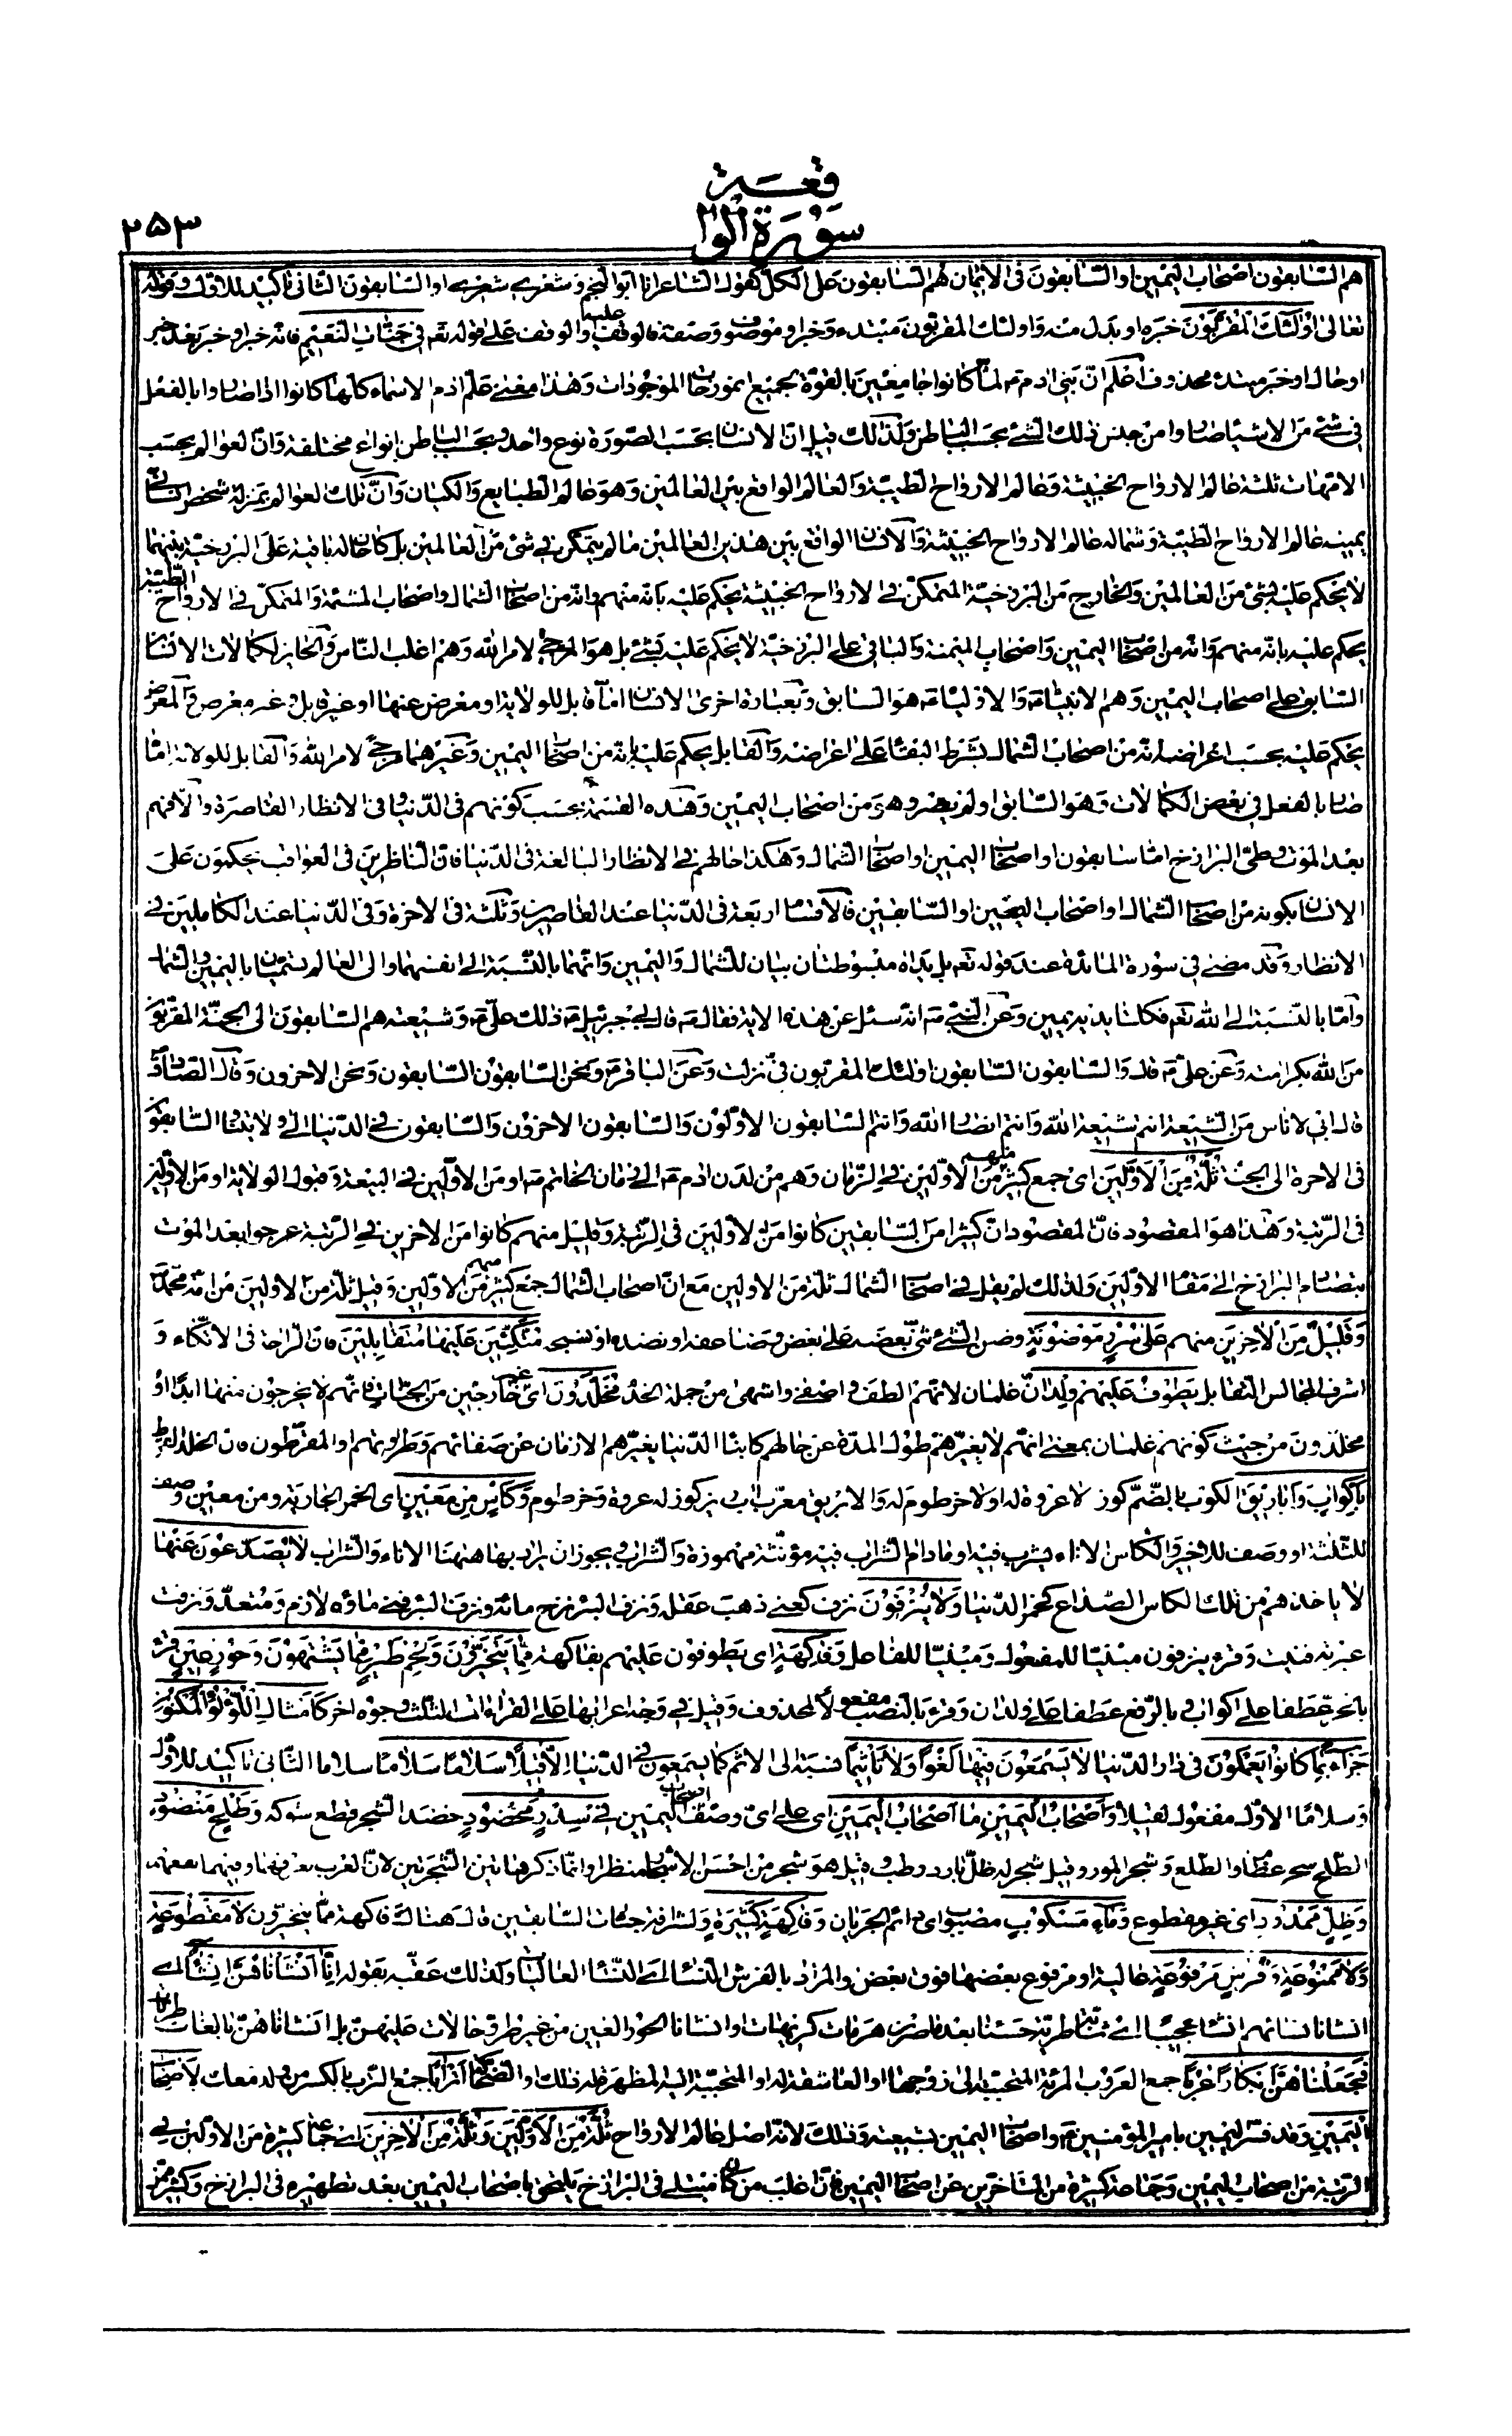 سورة الواقعة
٢٥٣
هم السّابقون اصحاب اليمين او السّابقون فى الايمان هم السّابقون على الكلّ كقول الشاعر انا ابو النجم و شعرى شعرى او السّابقون الثانى تاكيد للاوّل وقوله
تعالى اولئك المقرّبون خبره او بدل منه واولئك المقرّبون مبتدء وخبر او موصوف وصفة فالوقف عليه او الوقف على قوله تعم فى جنّات النّعيم فانّه خبر او خبر بعد خبر
او حال او خبر مبتدء محذوف اعلم انّ بنى ادم ع لمّا كانوا جامعين بالقوّة لجميع انموزجات الموجودات وهذا معنى علّم ادم الاسماء كلّها كانوا اذا صاروا بالفعل
فى شئ من الاشياء صاروا من جنس ذلك الشّئ بحسب الباطن ولذلك قيل انّ الانسان بحسب الصّورة نوع واحد وبحسب الباطن انواع مختلفة وانّ العوالم بحسب
الامّهات ثلثة عالم الارواح الخبيثة وعالم الارواح الطّيّبة والعالم الواقع بين العالمين وهو عالم الطبايع والكيان وانّ تلك العوالم بمنزلة شخص انسانى
يمينه عالم الارواح الطّيّبة وشماله عالم الارواح الخبيثة والانسان الواقع بين هذين العالمين ما لم يتمكّن فى شئ من العالمين بل كان حاله باقية على البرزخيّة بينهما
لا يحكم عليه بشئ من العالمين والخارج من البرزخيّة المتمكّن فى الارواح الخبيثة يحكم عليه بانّه منهم وانّه من اصحاب الشّمال واصحاب المشئمة والمتمكّن فى الارواح الطّيّبة
يحكم عليه بانّه منهم وانّه من اصحاب اليمين واصحاب الميمنة والباقى على البرزخيّة لا يحكم عليه بشئ بل هو المرجى لامر الله وهم اغلب النّاس والحايز لكمالات الانسان
السّابق على اصحاب اليمين وهم الانبياء ع والاولياء ع هو السابق وبعبارة اخرى الانسان امّا قابل للولاية او معرض عنها او غير قابل وغير معرض والمعرض
يحكم عليه بحسب اعراضه انّه من اصحاب الشّمال بشرط البقاء على اعراضه والقابل يحكم عليه بانّه من اصحاب اليمين وغيرهما مرجى لامر الله والقابل للولاية امّا
صار بالفعل فى بعض الكمالات وهو السّابق اولم يصر وهو من اصحاب اليمين وهذه القسمة بحسب كونهم فى الدّنيا وفى الانظار القاصرة والّا فهم
بعد الموت وطىّ البرازخ امّا سابقون او اصحاب اليمين او اصحاب الشّمال وهكذا حالهم فى الانظار البالغة فى الدّنيا فانّ النّاظرين فى العواقب يحكمون على
الانسان بكونه من اصحاب الشّمال او اصحاب اليمين او السّابقين فالاقسام اربعة فى الدّنيا عند القاصرين وثلثة فى الاخرة وفى الدّنيا عند الكاملين فى
الانظار وقد مضى فى سورة المائدة عند قوله تعم بل يداه مبسوطتان بيان للشّمال واليمين وانّهما بالنّسبة الى انفسهما والى العالم تسمّيان باليمين والشّمال
وامّا بالنّسبة الى الله تعم فكلتا يديه يمين وعن النّبى ص انّه سئل عن هذه الاية فقال ص قال لى جبرئيل ع ذلك علىّ ع وشيعته هم السّابقون الى الجنّة المقرّبون
من الله بكرامته وعن علىّ ع قال والسّابقون السّابقون اولئك المقرّبون فىّ نزلت وعن الباقر ع ونحن السّابقون السّابقون ونحن الاخرون وقال الصّادق ع
قال ابى لاناس من الشّيعة انتم شيعة الله وانتم انصار الله وانتم السّابقون الاوّلون والسّابقون الاخرون والسّابقون فى الدّنيا الى ولايتنا والسّابقون
فى الاخرة الى الجنّة ثلّة من الاوّلين اى جمع كثير منهم من الاوّلين فى الزّمان وهم من لدن ادم ع الى زمان الخاتم ص او من الاوّلين فى البيعة وقبول الولاية او من الاوّلين
فى الرّتبة وهذا هو المقصود فانّ المقصود انّ كثيرا من السّابقين كانوا من الاوّلين فى الرّتبة وقليل منهم كانوا من الاخرين فى الرّتبة عرجوا بعد الموت
البرازخ الى مقام الاوّلين ولذلك لم يقل فى اصحاب الشّمال ثلّة من الاولين مع انّ اصحاب الشّمال جمع كثير منهم من الاوّلين وقيل ثلّة من الاولين من امّة محمّد ص
وقليل من الاخرين منهم على سرر موضونة وضن الشّئ ثنى بعضه على بعض وضاعفه او نضده او نسجه متّكئين عليها متقابلين فانّ الرّاحة فى الاتّكاء و
اشرف المجالس التقابل يطوف عليهم ولدان غلمان لانّهم الطف واصفى واشهى من جملة الخدم مخلّدون اى غير خارجين من الجنّات فانّهم لا يخرجون منها ابدا او
مخلّدون من حيث كونهم غلمان بمعنى انّهم لا يغيّرهم طول المدّة عن حالهم كابناء الدّنيا يغيّرهم الازمان عن صفائهم وطراوتهم او المقرّطون فانّ الخلد القرط
باكواب واباريق الكوب بالضّمّ كوز لا عروة له او لا خرطوم له والابريق معرّب اب ريز كوز له عروة وخرطوم وكاس من معين اى الخمر الجارية ومن معين وصف
للثّلثة او وصف للاخير والكاس الاناء يشرب فيه او مادام الشّراب فيه مؤنّثة مهموزة والشّراب ويجوز ان يراد بها ههنا الاناء والشّراب لا يصدّعون عنها
لا ياخذهم من تلك الكاس الصّداع كخمر الدّنيا ولا ينزفون نزف كعنى ذهب عقله ونزف البئر نزح مائه ونزف البئر فنى ماؤه لازم ومتعدّ ونزفت
عبرته فنيت وقرء ينزفون مبنيّا للمفعول ومبنيّا للفاعل وفاكهة اى يطوفون عليهم بفاكهة ممّا يتخيّرون ولحم طير ممّا يشتهون وحور عين قرء
بالجرّ عطفا على اكواب وبالرّفع عطفا على ولدان وقرء بالنّصب مفعولا لمحذوف وقيل فى وجه اعرابها على القراءات الثلث وجوه اخر كامثال اللّؤلؤ المكنون
جزاء بما كانوا يعملون فى دار الدّنيا لا يسمعون فيها لغوا ولا تاثيما نسبة الى الاثم كما يسمعون فى الدّنيا الّا قيلا سلاما سلاما سلاما الثّانى تاكيد للاوّل
وسلاما الاوّل مفعول لقيلا واصحاب اليمين ما اصحاب اليمين اى على اىّ وصف اصحاب اليمين فى سدر مخضود خضد الشّجر قطع شوكه وطلح منضود
الطّلح شجر عظام والطّلع وشجر الموز وقيل شجر له ظلّ بارد رطب وقيل هو شجر من احسن الاشجار منظرا وانّما ذكر هاتين الشّجرتين لانّ العرب
وظلّ ممدود اى غير مقطوع وماء مسكوب مصبوب اى دائم الجريان وفاكهة كثيرة ولشرافة جنّات السّابقين قال هناك وفاكهة ممّا يتخيّرون لا مقطوعة
ولا ممنوعة وفرش مرفوعة عالية او مرفوع بعضها فوق بعض والمراد بالفرش النّساء اى النّساء العاليات ولذلك عقّبه بقوله انّا انشاناهنّ انشاء اى
انشانا نسائهم انشاء عجيبا اى شابّة طريّة حسناء بعد ما صرن هرمات كريهات او انشانا الحور العين من غير طرق حالات عليهنّ بل انشاناهنّ بالغات طريّات
فجعلناهنّ ابكارا عربا جمع العروب المرئة المتحبّبة الى زوجها او العاشقة له او المتحبّبة اليه المظهرة له ذلك او الضّحّاكة اترابا جمع التّرب بالكسر من ولد معك لاصحاب
اليمين وقد فسّر اليمين بامير المؤمنين ع واصحاب اليمين بشيعته وذلك لانّه اصل عالم الارواح ثلّة من الاوّلين وثلّة من الاخرين اى جماعة كثيرة من الاوّلين فى
الرّتبة من اصحاب اليمين وجماعة كثيرة من المتاخّرين عن اصحاب اليمين فانّ اغلب من كان مبتلى فى البرازخ يلحق باصحاب اليمين بعد تطهيره فى البرازخ وكثير ممّن